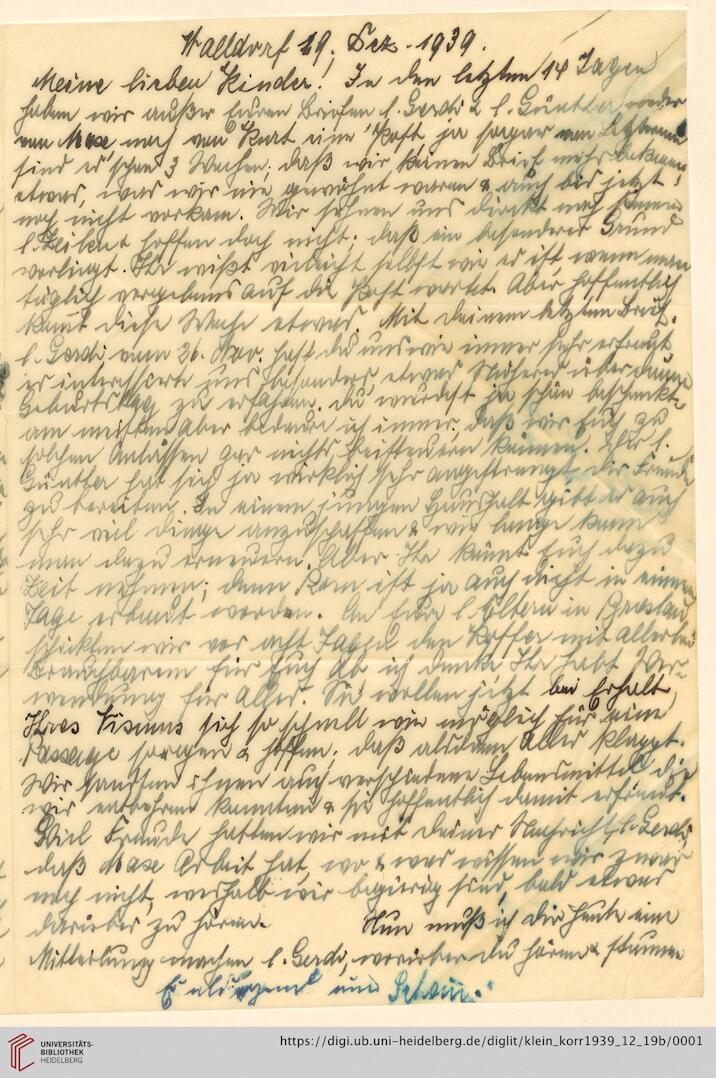 Walldorf 19. Dez. 1939.
Meine lieben Kinder! In den letzten 14 Tagen
haben wir außer Euren Briefen l. Gerdi & l. Günther, weder
von Maxe noch von Kurt eine Post ja sogar von Letzterem
sind es schon 3 Wochen, daß wir keinen Brief mehr bekamen
etwas, was wir nie gewöhnt waren & auch bis jetzt
noch nicht vorkam. Wir sehnen uns direkt nach seinen
l. Zeilen & hoffen doch nicht, daß ein besonderer Grund
vorliegt. Ihr wißt vielleicht selbst wie es ist, wenn man
täglich vergebens auf die Post wartet. Aber hoffentlich
kommt diese Woche etwas. Mit Deinem letzten Brief,
l. Gerdi vom 26. Nov. hast du uns wie immer sehr erfreut
es interessierte uns besonders, etwas Näheres über Deinen
Geburtstag zu erfahren. Du wurdest ja schön beschenkt,
am meisten aber bedaure ich immer, daß wir Euch zu
solchen Anlässen gar nichts beisteuern können. Der l.
Günther hat sich ja wirklich sehr angestrengt, Dir Freude
zu bereiten. In einem jungen Haushalt gibt es auch
sehr viel Dinge anzuschaffen & wie lange kann
man dazu erneuern. Aber Ihr könnt Euch dazu
Zeit nehmen; denn Rom ist ja auch nicht in einem
Tage erbaut worden. An Eure l. Eltern in Breslau
schickten wir vor acht Tagen den Koffer mit allerlei
Brauchbarem für Euch ab ich denke Ihr habt Ver-
wendung für Alles. Sie wollen jetzt bei Erhalt
Ihres Visums sich so schnell wie möglich für eine
Passage sorgen & hoffen, daß alsdann Alles klappt.
Wir sandten ihnen auch verschiedene Lebensmittel die
wir entbehren konnten & sie hoffentlich damit erfreut.
Viel Freude hatten wir mit deiner Nachricht, l. Gerdi,
daß Maxe Arbeit hat, wo & was wissen wir zwar
noch nicht, weshalb wir begierig sind, bald etwas
darüber zu hören. Nun muß ich Dir heute eine
Mitteilung machen l. Gerdi, worüber du hören & staunen
UNIVERSITÄTS-
BIBLIOTHEK
HEIDELBERG
https://digi.ub.uni-heidelberg.de/diglit/klein_korr1939_12_19b/0001